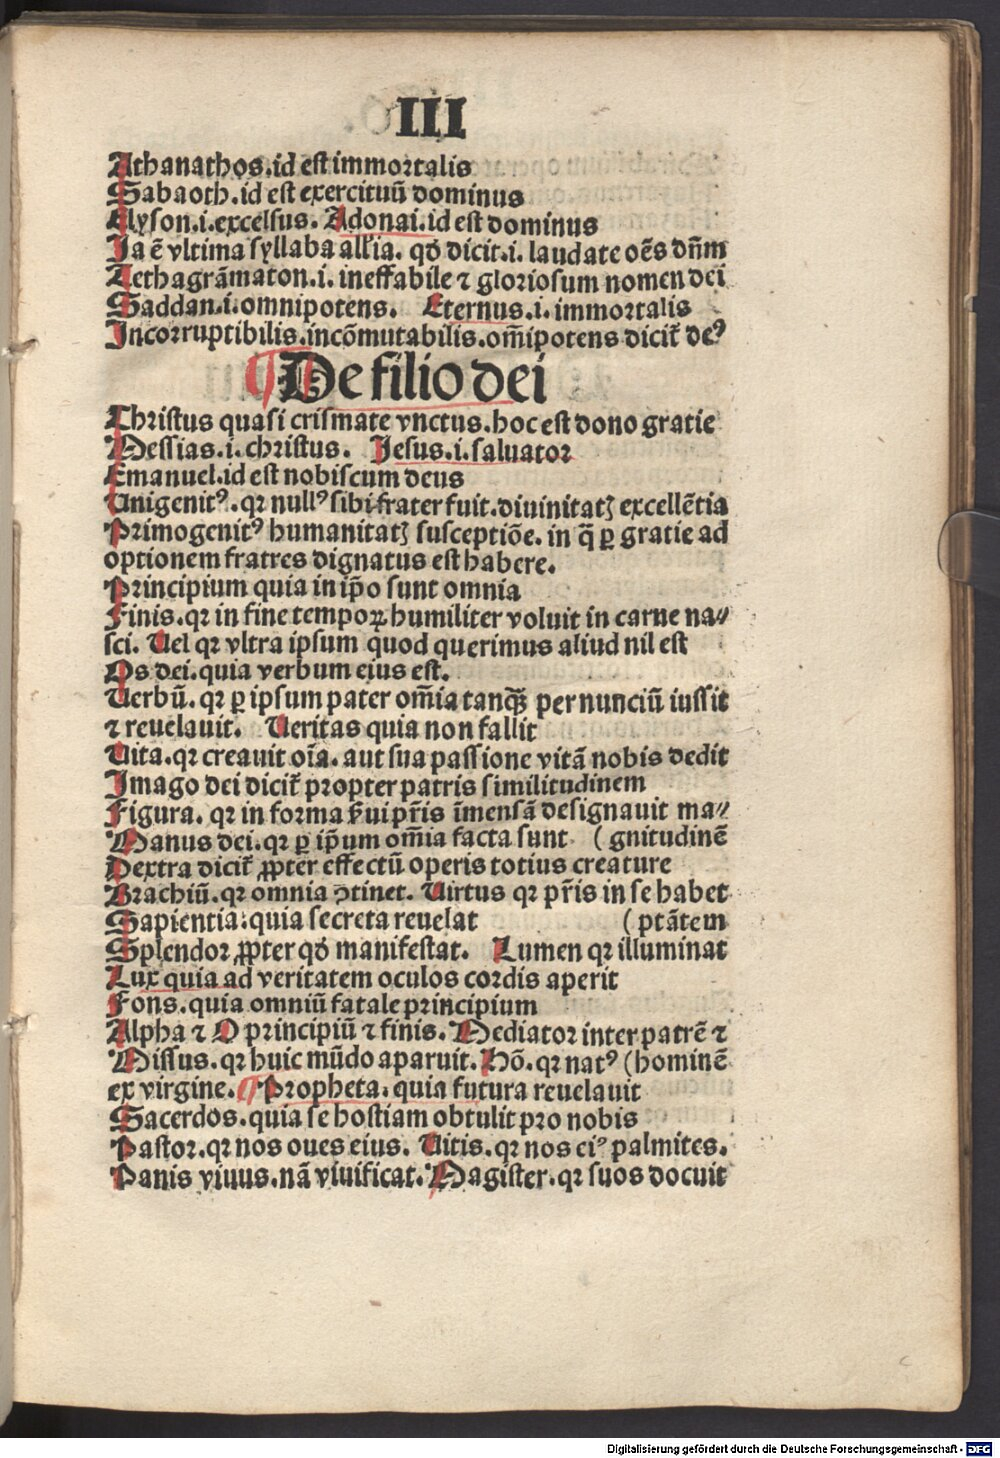 III
Athanathos.id est immortalis
Sabaoth.id est exercituū dominus
Elyson.i.excelsus. Adonai.id est dominus
Ja ē vltima syllaba all'ia. qđ dicit.i. laudate oēs dn̄m
Tethagrāmaton.i. ineffabile ⁊ gloriosum nomen dei
Saddan.i.omnipotens. Eternus.i.immortalis
Incorruptibilis.incōmutabilis.om̄ipotens dicit̄ deꝰ
¶ De filio dei
Christus quasi crismate vnctus.hoc est dono gratie
Messias.i.christus. Jesus.i.saluator
Emanuel.id est nobiscum deus
Unigenitꝰ.qꝛ nullꝰ sibi frater fuit.diuinitatꝭ excellētia
Primogenitꝰ humanitatꝭ susceptiōe. in q̄ ꝑ gratie ad
optionem fratres dignatus est habere.
Principium quia in ip̄o sunt omnia
Finis.qꝛ in fine tempoꝝ humiliter voluit in carne na⸗
sci. Uel qꝛ vltra ipsum quod querimus aliud nil est
Os dei.quia verbum eius est.
Uerbū.qꝛ ꝑ ipsum pater om̄ia tanq̄ꝫ per nunciū iussit
⁊ reuelauit. Ueritas quia non fallit
Uita.qꝛ creauit oīa.aut sua passione vitā nobis dedit
Imago dei dicit̄ propter patris similitudinem
Figura.qꝛ in forma ẜui pr̄is īmensā designauit ma⸗
Manus dei.qꝛ ꝑ ip̄um om̄ia facta sunt (gnitudinē
Dextra dicit̄ ꝓpter effectū operis totius creature
Brachiū.qꝛ omnia ꝯtinet. Uirtus qꝛ pr̄is in se habet
Sapientia.quia secreta reuelat (ptātem
Splendor ꝓpter qđ manifestat. Lumen qꝛ illuminat
Lux quia ad veritatem oculos cordis aperit
Fons.quia omniū fatale principium
Alpha ⁊ O principiū ⁊ finis. Mediator inter patrē ⁊
Missus.qꝛ huic mūdo aparuit. Hō.qꝛ natꝰ (hominē
ex virgine. ¶ Propheta.quia futura reuelauit
Sacerdos.quia se hostiam obtulit pro nobis
Pastor.qꝛ nos oues eius. Uitis.qꝛ nos eiꝰ palmites.
Panis viuus.nā viuificat. Magister.qꝛ suos docuit
Digitalisierung gefördert durch die Deutsche Forschungsgemeinschaft - DFG